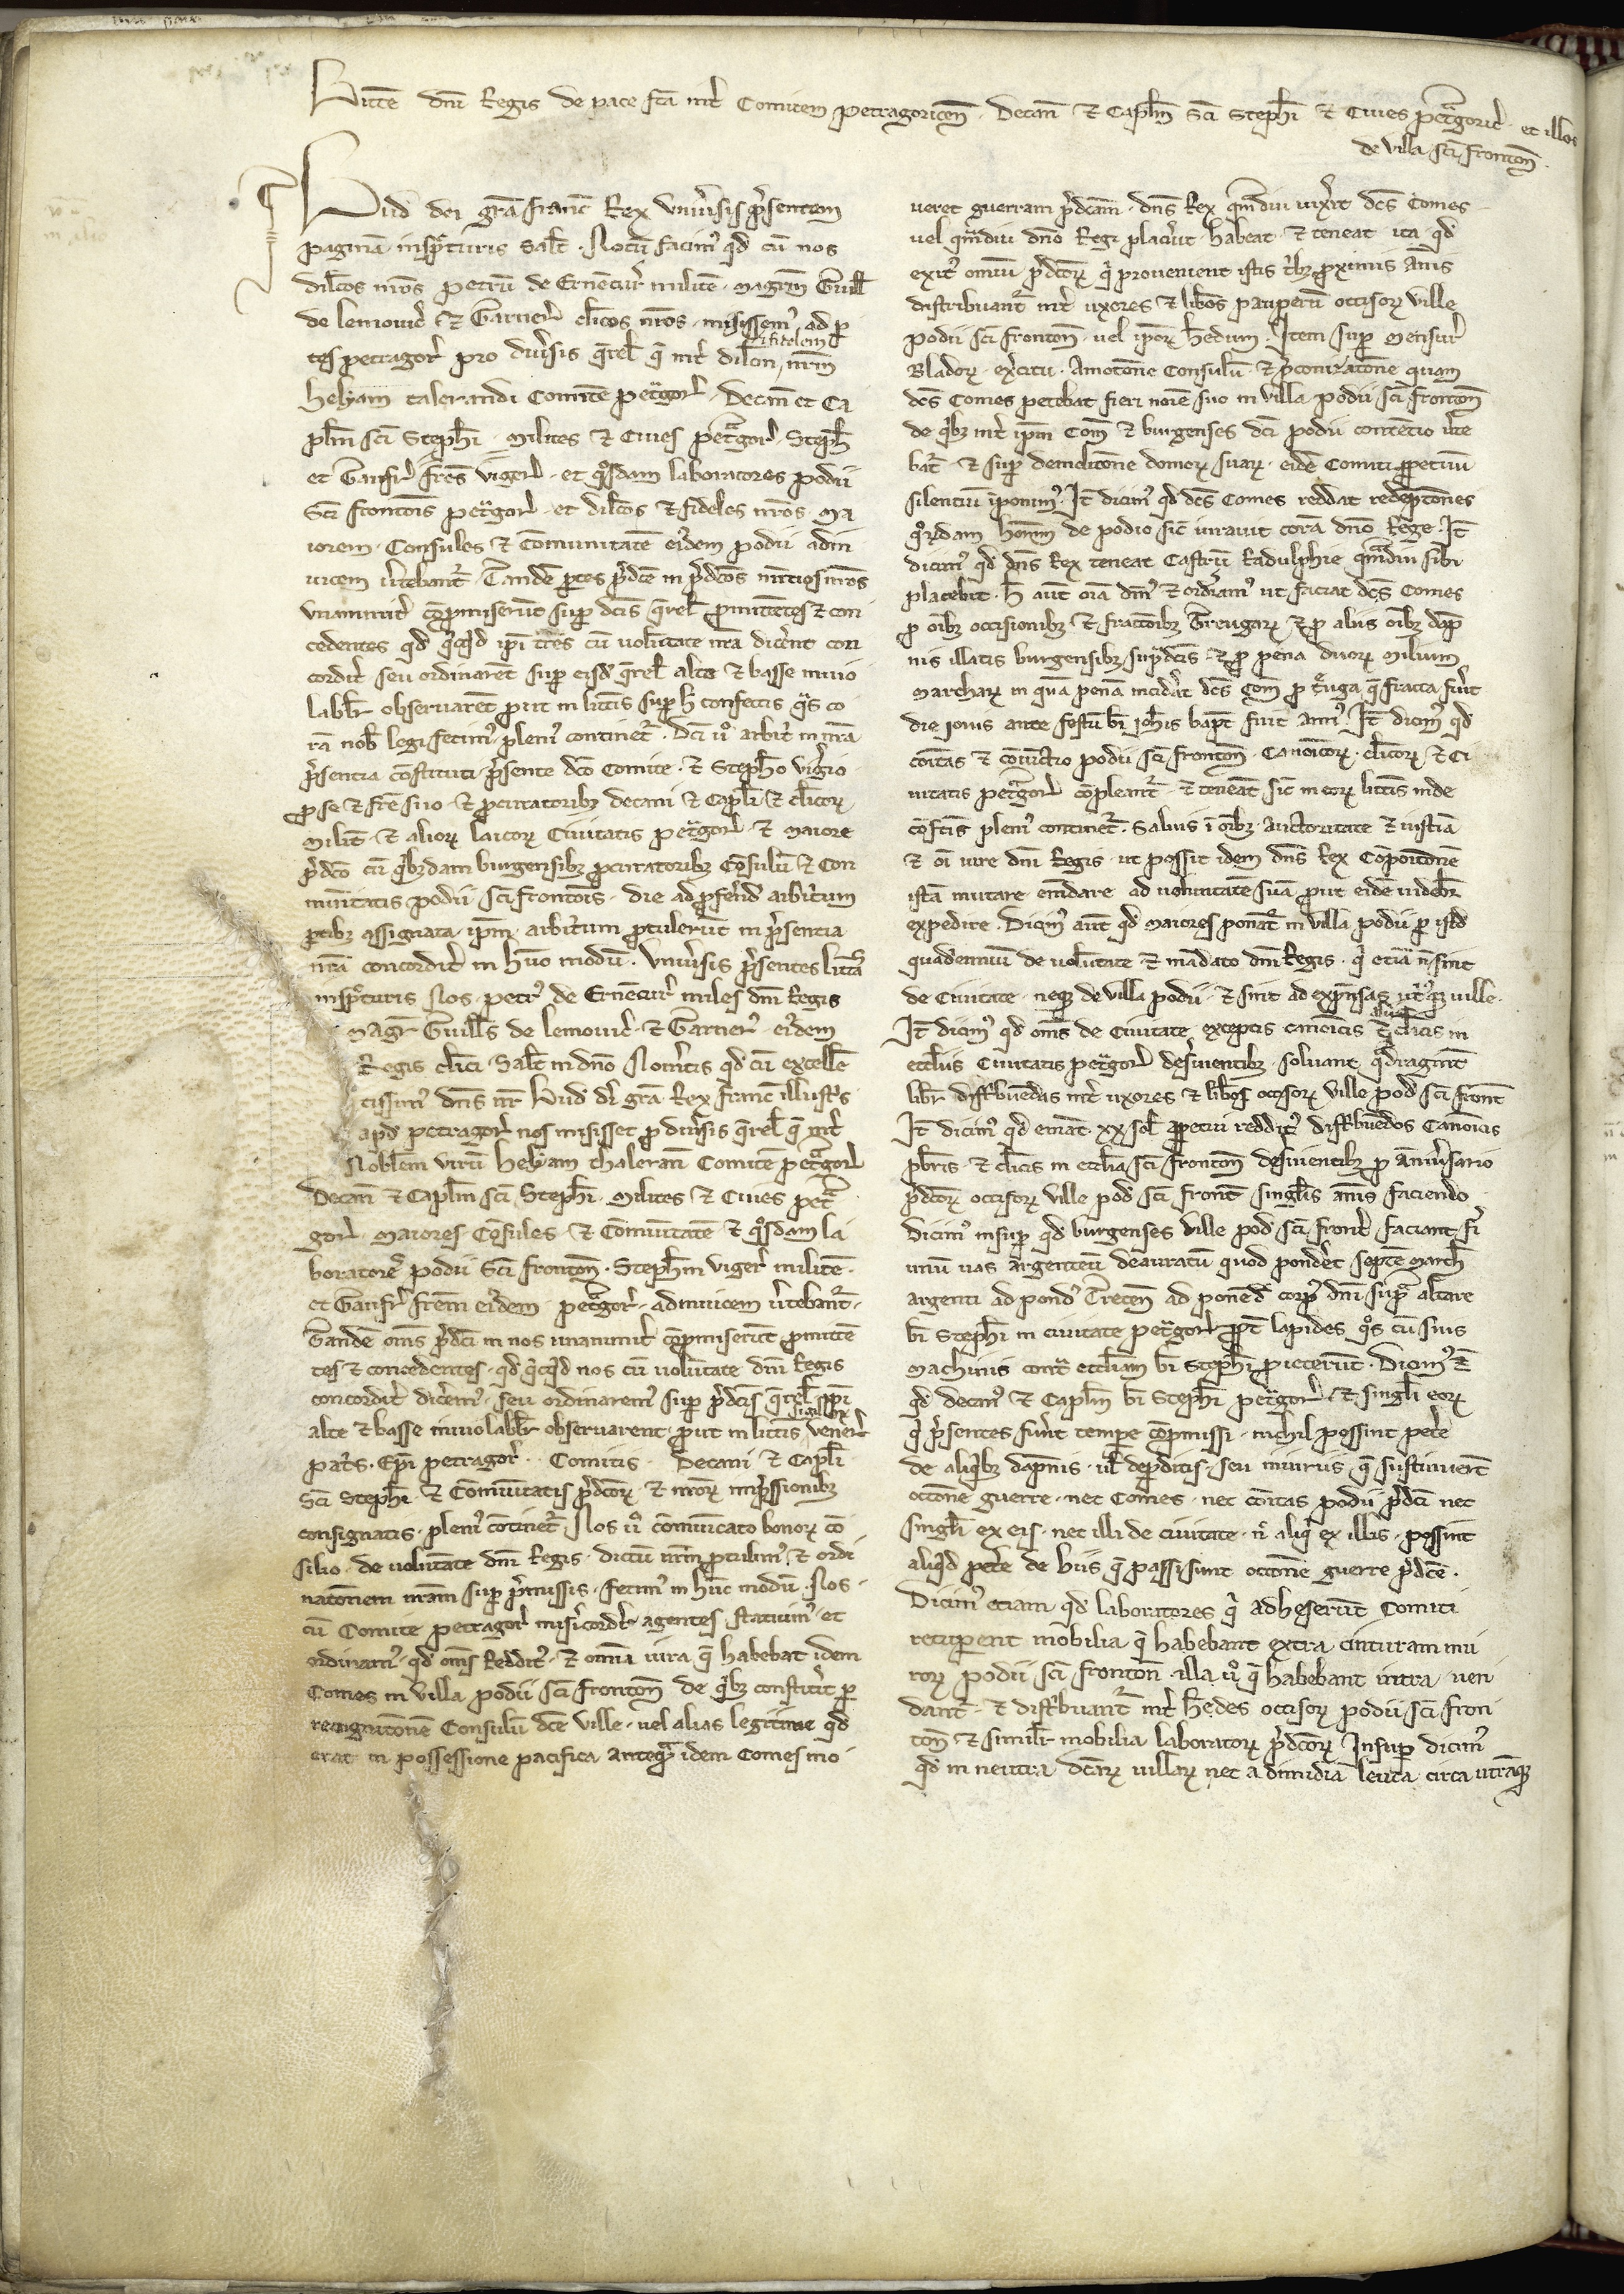 Littẽ dñi Regis de pace fcã int̃ Comitem petragoriceñ. Decañ et Caplm̃ Sci Stephi et Ciues petᵃgoric̃. et illos
de villa sci frontoñ.
Lud dei gr̃a franc̃ Rex Vniũsis p̃sentem
paginã insp̃cturis Salt̃. Notũ facim᷒ qd̃ cũ nos
dil̃cos nr̃os petrũ de Erneñcur̃ militẽ. magr̃m Guill̃
de lemouic̃ et Garner̃ cl̃icos nr̃os. misissem᷒ ad ꝑ
tes petragor̃ pro diũsis q̃rel̃ q̃ int̃ dil̃cm et fidelem nr̃m
helyam talerandi Comitẽ petᵃgor̃. Decañ et Ca
plm̃ sci Stephi. Milites et Ciues petᵃgor̃. Steph̃
et Gaufr̃ fr̃es viger̃. et q̊sdam laboratores podii
Sci frontoñis petᵃgor̃. et dil̃cos et fideles nr̃os. Ma
iorem. Consules et Cõmunitatẽ eiꝰdem podii adin
uicem ũtebant᷑. Tandẽ ꝑtes p̃dc̃e in p̃dc̃os nũtios nr̃os
vnanimit̃ cõpmiserũt sup̃ dc̃is q̃rel̃ ꝓmittẽtes et con
cedentes qd̃ q̃cq̃d ip̃i tres cũ uolũtate nr̃a dic̃ent con
cordit̃ seu ordinarẽt sup̃ eisd̃ q̃rel̃ alte et basse inuio
labl̃r obseruarẽt ꝓut in litt̃is sup̃ h̃ confectis q̃s co
rã nob̃ legi fecim᷒ pleni᷒ continet᷑. Dc̃i ũ arbit̃ in nr̃a
p̃sentia cõstituti. p̃sente dc̃o Comite. et Stepho vigio
ꝓ se et fr̃e suo. et ꝓcuratoribꝫ decani et Capl̃i et cl̃icoꝝ
milit̃. et alioꝝ laicoꝝ Ciuitatis petᵃgor̃. et maiore
p̃dc̃o cũ q̃bꝫdam burgensibꝫ ꝓcuratoribꝫ Cõsulũ et Com
munitatis podii sci frontoñis. die ad ꝓferẽd̃ arbit̃um
ꝑtibꝫ assignata. ip̃m arbit̃um ꝓtulerũt in p̃sentia
nr̃a concordit̃ in hũc modũ. Vniũsis p̃sentes litt̃as
insp̃cturis Nos. petr᷒ de Erneñcur̃ miles dñi Regis
Magr̃ Guill̃s de lemouic̃. et Garner᷒ eiꝰdem
Regis cl̃ici. Salt̃ in dño Noũitis qd̃ cũ excellẽ
tissim᷒ dñs nr̃ Lud̃ di gr̃a Rex franc̃ illustr̃s
apd̃ petragor̃ nos misisset ꝓ diũsis q̃rel̃ q̃ int̃
Nobilem virũ helyam thalerañ Comitẽ petᵃgor̃
Decañ et Caplm̃ sci Stephi. Milites et Ciues petᵃ
gor̃. Maiores Cõsules et Cõmunitatẽ et q̊sdam la
boratores podii Sci frontoñ. Stephm̃ viger̃ militẽ.
et Gaufr̃ fr̃em eiꝰdem petᵃgor̃. adinuicem ũtebant᷑.
Tandẽ om̃s p̃dc̃i in nos unanimit̃ cõpmiserũt ꝓmittẽ
tes et concedentes. qd̃ q̃cq̃d nos cũ uolũtate dñi Regis
concordit̃ dic̃em᷒. seu ordinarem᷒ sup̃ p̃dc̃is q̃rel̃ ip̃i
alte et basse inuiolabl̃r obseruarent ꝓut in litt̃is sigilloꝝ vener̃
pat̃s. Ep̃i petragor̃. Comitis. Decani et Capl̃i
Sci Stephi et Cõmunitatis p̃dc̃oꝝ et nr̃oꝝ imp̃ssionibꝫ
consignatis pleni᷒ cõtinet᷑. Nos ũ cõmunicato bonoꝝ cõ
silio. de uolũtate dñi Regis. dictũ nr̃m ꝓtulim᷒. et ordi
natõnem nr̃am sup̃ p̃missis. fecim᷒ in hũc modũ. Nos
cũ Comite petragor̃ mis̃icordit̃ agentes. statuim᷒ et
ordinam᷒. qd̃ om̃s reddit᷒. et om̃ia iura q̃ habebat idem
Comes in villa podii sci frontoñ de q̃bꝫ constitit̃ ꝑ
recognitõnẽ Consulũ dc̃e ville. uel alias legitime qd̃
erat in possessione pacifica anteq̃ᵃ idem Comes mo
ueret guerram p̃dc̃am. dñs Rex q̃mdiu uix̃it dc̃s Comes
uel q̃mdiu dño Regi placũit habeat et teneat ita qd̃
exit᷒ omiũ p̃dc̃oꝝ q̃ prouenient istis t̃bꝫ ꝓximis anis
distribuant᷑ int̃ uxores et lib̃os pauperũ occisoꝝ ville
podii sci frontoñ. uel ip̃oꝝ h̃edum. Item sup̃ Mensur̃
Bladoꝝ. ex̃citu. Amotõne Consulũ. et p̃coniᵃtõne quam
dc̃s Comes petebat fieri noĩe suo in villa podii sci frontoñ
de q̃bꝫ int̃ ip̃m Com̃ et burgenses dc̃i podii contẽtio ũte
bat᷑. et sup̃ demolitõne domoꝝ suaꝝ. eidẽ Comiti ꝑpetuũ
silentiũ ĩponim᷒. It̃ dicim᷒ qd̃ dc̃s Comes reddat redẽptões
q̊rũdam hom̃m de podio sic̃ iurauit corã dño Rege. It̃
dicim᷒ qd̃ dñs Rex teneat Castrũ Radulphie q̃mdiu sibi
placebit. h̃ aut̃ oĩa dim᷒ et ordiam᷒ ut faciat dc̃s Comes
ꝓ oĩbꝫ occisionibꝫ et fractõibꝫ treugaꝝ et ꝓ aliis oĩbꝫ dãp
nis illatis burgensibꝫ sup̃dc̃is et ꝓ pena duoꝝ milium
marchaꝝ in quã penã incid̃at dc̃s Com̃ ꝓ treuga q̃ fracta fuit
die iouis ante festũ bi Johis bapt̃ fuit an᷒. It̃ dicim᷒ qd̃
coĩtas et cõiũctio podii sci frontoñ. Canoicoꝝ. cl̃icoꝝ. et Ci
uitatis petᵃgor̃ cõpleant᷑. et teneãt sic̃ in eoꝝ litt̃is inde
cõf̃tis pleni᷒ continet᷑. Saluis ĩ oĩbꝫ. auctoritate et iustĩa
et oĩ iure dñi Regis. ut possit idem dñs Rex Cõpoitõnẽ
istã mutare em̃dare ad uoluntatẽ suã ꝓut eidẽ uidebit̃
expedire. Dicim᷒ aut̃ qd̃ maiores ponãt᷑ in villa podii ꝑ istud
quadẽnium de uolũtate et mãdato dñi Regis. q̃ etiã ñ sint
de Ciuitate. neqꝫ de villa podii. et sint ad expẽnsas ut᷑qꝫ ville.
It̃ dicim᷒ qd̃ om̃s de Ciuitate exceptis canoicis et aliis cl̃icis in
eccl̃iis Ciuitatis petᵃgor̃ des̃uientibꝫ. soluant q̃dragint̃
libr̃ distibuẽdas int̃ uxores et lib̃os occisoꝝ ville pod̃ sci front̃
It̃ dicim᷒ qd̃ emãt. xx. sol̃ ꝑpetui reddit᷒ distibuẽdos Canoicis
p̃bris. et cl̃icis in eccl̃ia sci frontoñ des̃uientibꝫ ꝓ ãniũsario
p̃dc̃oꝝ occisoꝝ ville pod̃ sci front̃ singlis anis faciendo
Dicim᷒ insup̃ qd̃ burgenses ville pod̃ sci front̃. faciant fi᷑
unũ uas argenteũ deauratũ quod pondet septẽ march̃
argenti ad pond᷒ Treceñ ad ponẽd̃ corp᷒ dñi sup̃ altare
bi Stephi in ciuitate petᵃgor̃ ꝓpt̃ lapides q̊s cũ suis
machinis contᵃ eccl̃iam bi Stephi ꝓiecerũt. Dicim᷒ et̃
qd̃ decan᷒ et Caplm̃ bi Stephi petᵃgor̃. et singl̃i eoꝝ
q̃ p̃sentes fuer̃t tempe cõpmissi. nichil possint pete
de aliq̃bꝫ dãpnis. ul̃ depditis. seu iniuriis q̃ sustinuerũt
occõne guerre. nec Comes. nec coĩtas podii p̃dc̃i nec
singl̃i ex eis. nec illi de ciuitate. ũ aliq̃ ex illis. possint
aliq̃d pete de hiis q̃ passi sunt occõne guerre p̃dc̃e.
Dicim᷒ etiam qd̃ laboratores q̃ adheserũt Comiti
recupent mobilia q̃ habebant extra cinturam mu
roꝝ podii sci frontoñ. illa ũ q̃ habebant intra uen
dant᷑. et distibuant᷑ int̃ h̃edes occisoꝝ podii sci fron
toñ et simil̃r mobilia laboratoꝝ p̃dc̃oꝝ Insup̃ dicim᷒
qd̃ in neutra dc̃aꝝ uillaꝝ nec a dimidia leuca circa utrãqꝫ